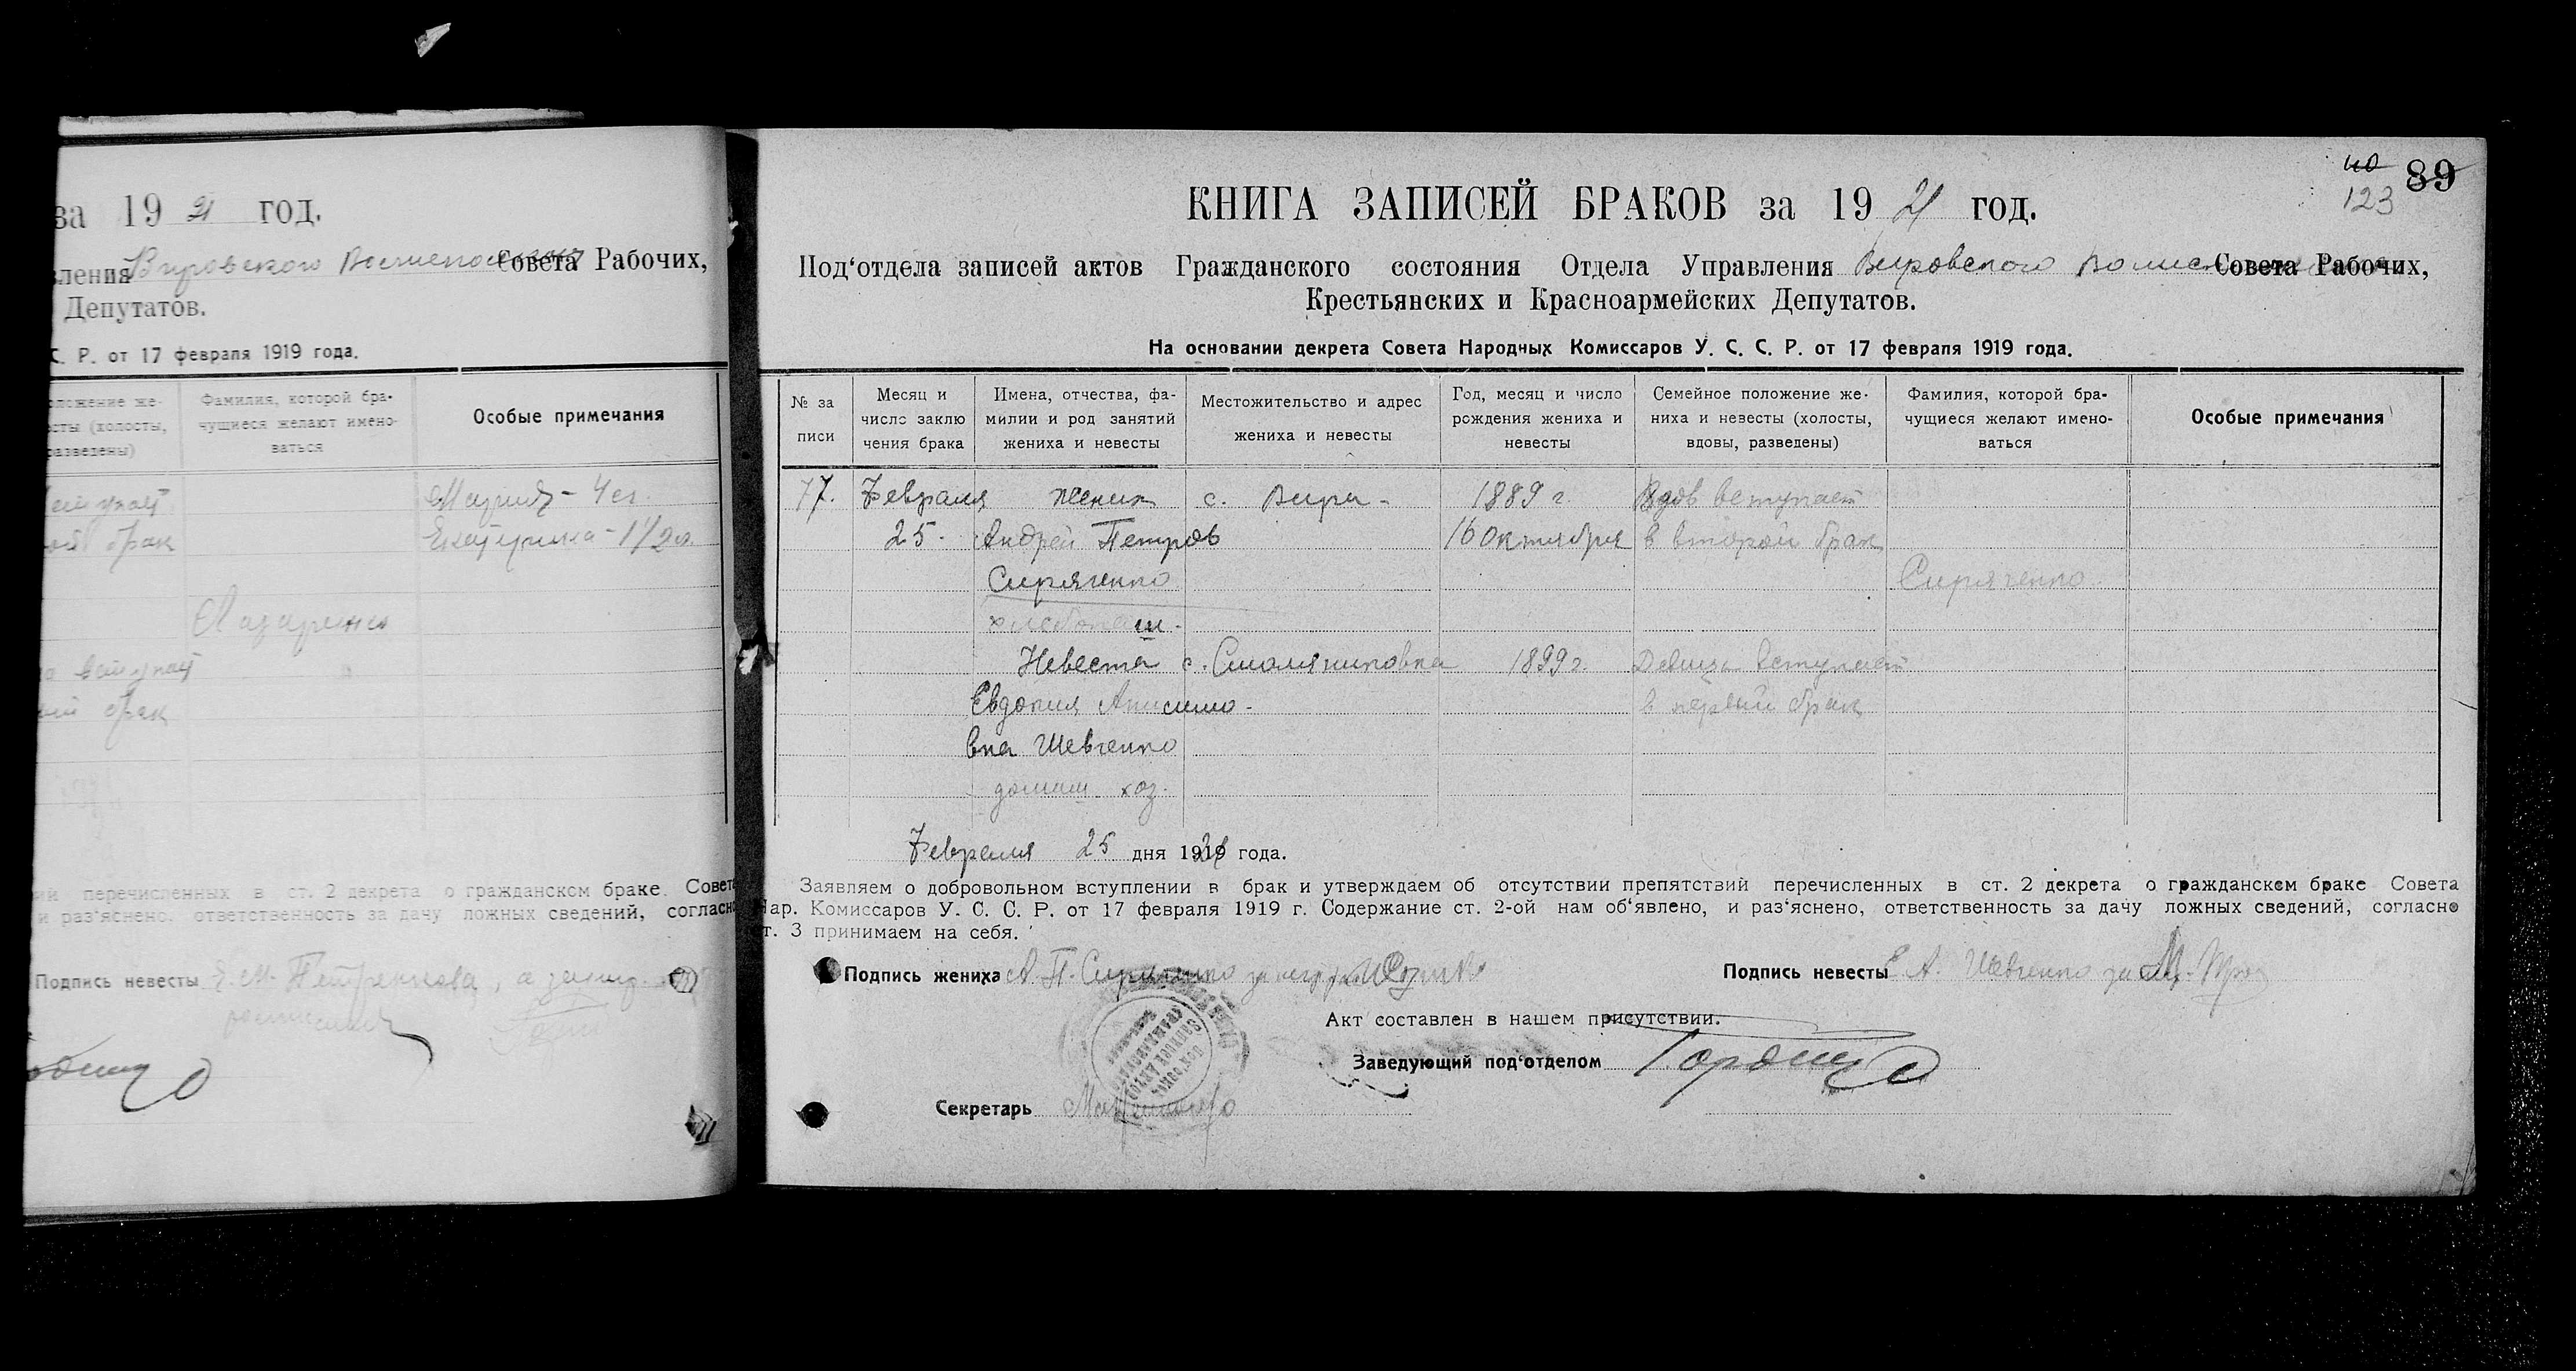 за 19 21 год.
вления Вировского Совета Рабочих,
Депутатов.
С. Р. от 17 февраля 1919 года.
ложение же-
сты (холосты,
разведены)
Фамилия, которой бра-
чущиеся желают имено-
ваться
Особые примечания
Мария - 4 л.
Екатерина - 1 1/2 л.
брак
вступает
брак
ий перечисленных в ст. 2 декрета о гражданском браке. Совета
и раз'яснено, ответственность за дачу ложных сведений, согласно
Подпись невесты
110
123 89
КНИГА ЗАПИСЕЙ БРАКОВ за 19 21 год.
Под'отдела записей актов Гражданского состояния Отдела Управления Вировского Совета Рабочих,
Крестьянских и Красноармейских Депутатов.
На основании декрета Совета Народных Комиссаров У. С. С. Р. от 17 февраля 1919 года.
№ за
писи
Месяц и
число заклю
чения брака
Имена, отчества, фа-
милии и род занятий
жениха и невесты
Местожительство и адрес
жениха и невесты
Год, месяц и число
рождения жениха и
невесты
Семейное положение же-
ниха и невесты (холосты,
вдовы, разведены)
Фамилия, которой бра-
чущиеся желают имено-
ваться
Особые примечания
77. Февраля жених с. Вири - 1889 г. Вдов вступает
25. Андрей Петров 16 октября в второй брак
Сиряченко Сиряченко
хлебопаш.
Невеста с. Смоляниповка 1899 г. Девица вступает
Евдокия Анисимо- в первый брак
вна Шевченко
домаш. хоз.
Февраля 25 дня 1921 года.
Заявляем о добровольном вступлении в брак и утверждаем об отсутствии препятствий перечисленных в ст. 2 декрета о гражданском браке Совета
Нар. Комиссаров У. С. С. Р. от 17 февраля 1919 г. Содержание ст. 2-ой нам об'явлено, и раз'яснено, ответственность за дачу ложных сведений, согласно
ст. 3 принимаем на себя.
Подпись жениха А. П. Сиряченко
Подпись невесты Е. А. Шевченко за
Акт составлен в нашем присутствии.
Заведующий под'отделом
Секретарь